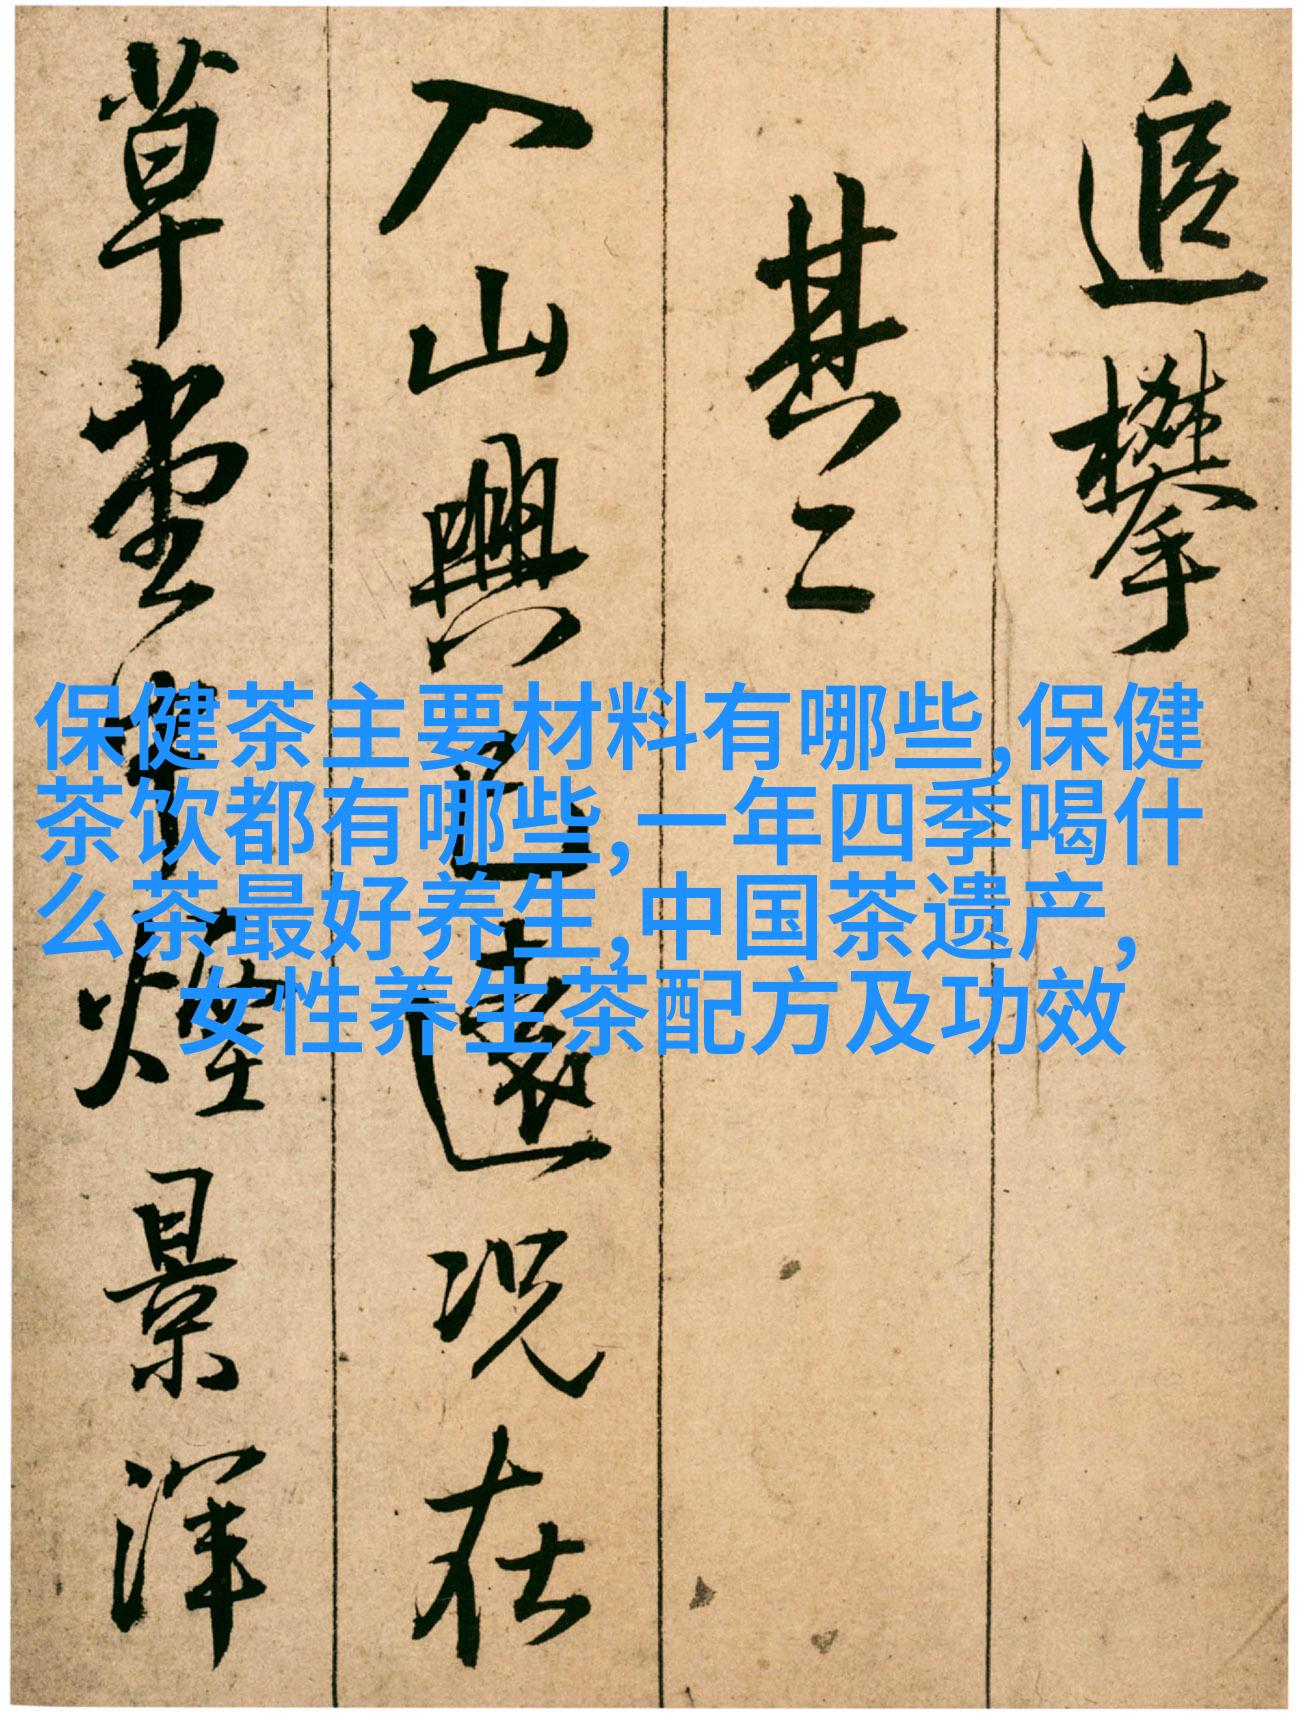 追攀
其二
入山興已遠况在
草堂中煙景渾
保健茶主要材料有哪些,保健
茶饮都有哪些,一年四季喝什
么茶最好养生,中国茶遗产,
女性养生茶配方及功效